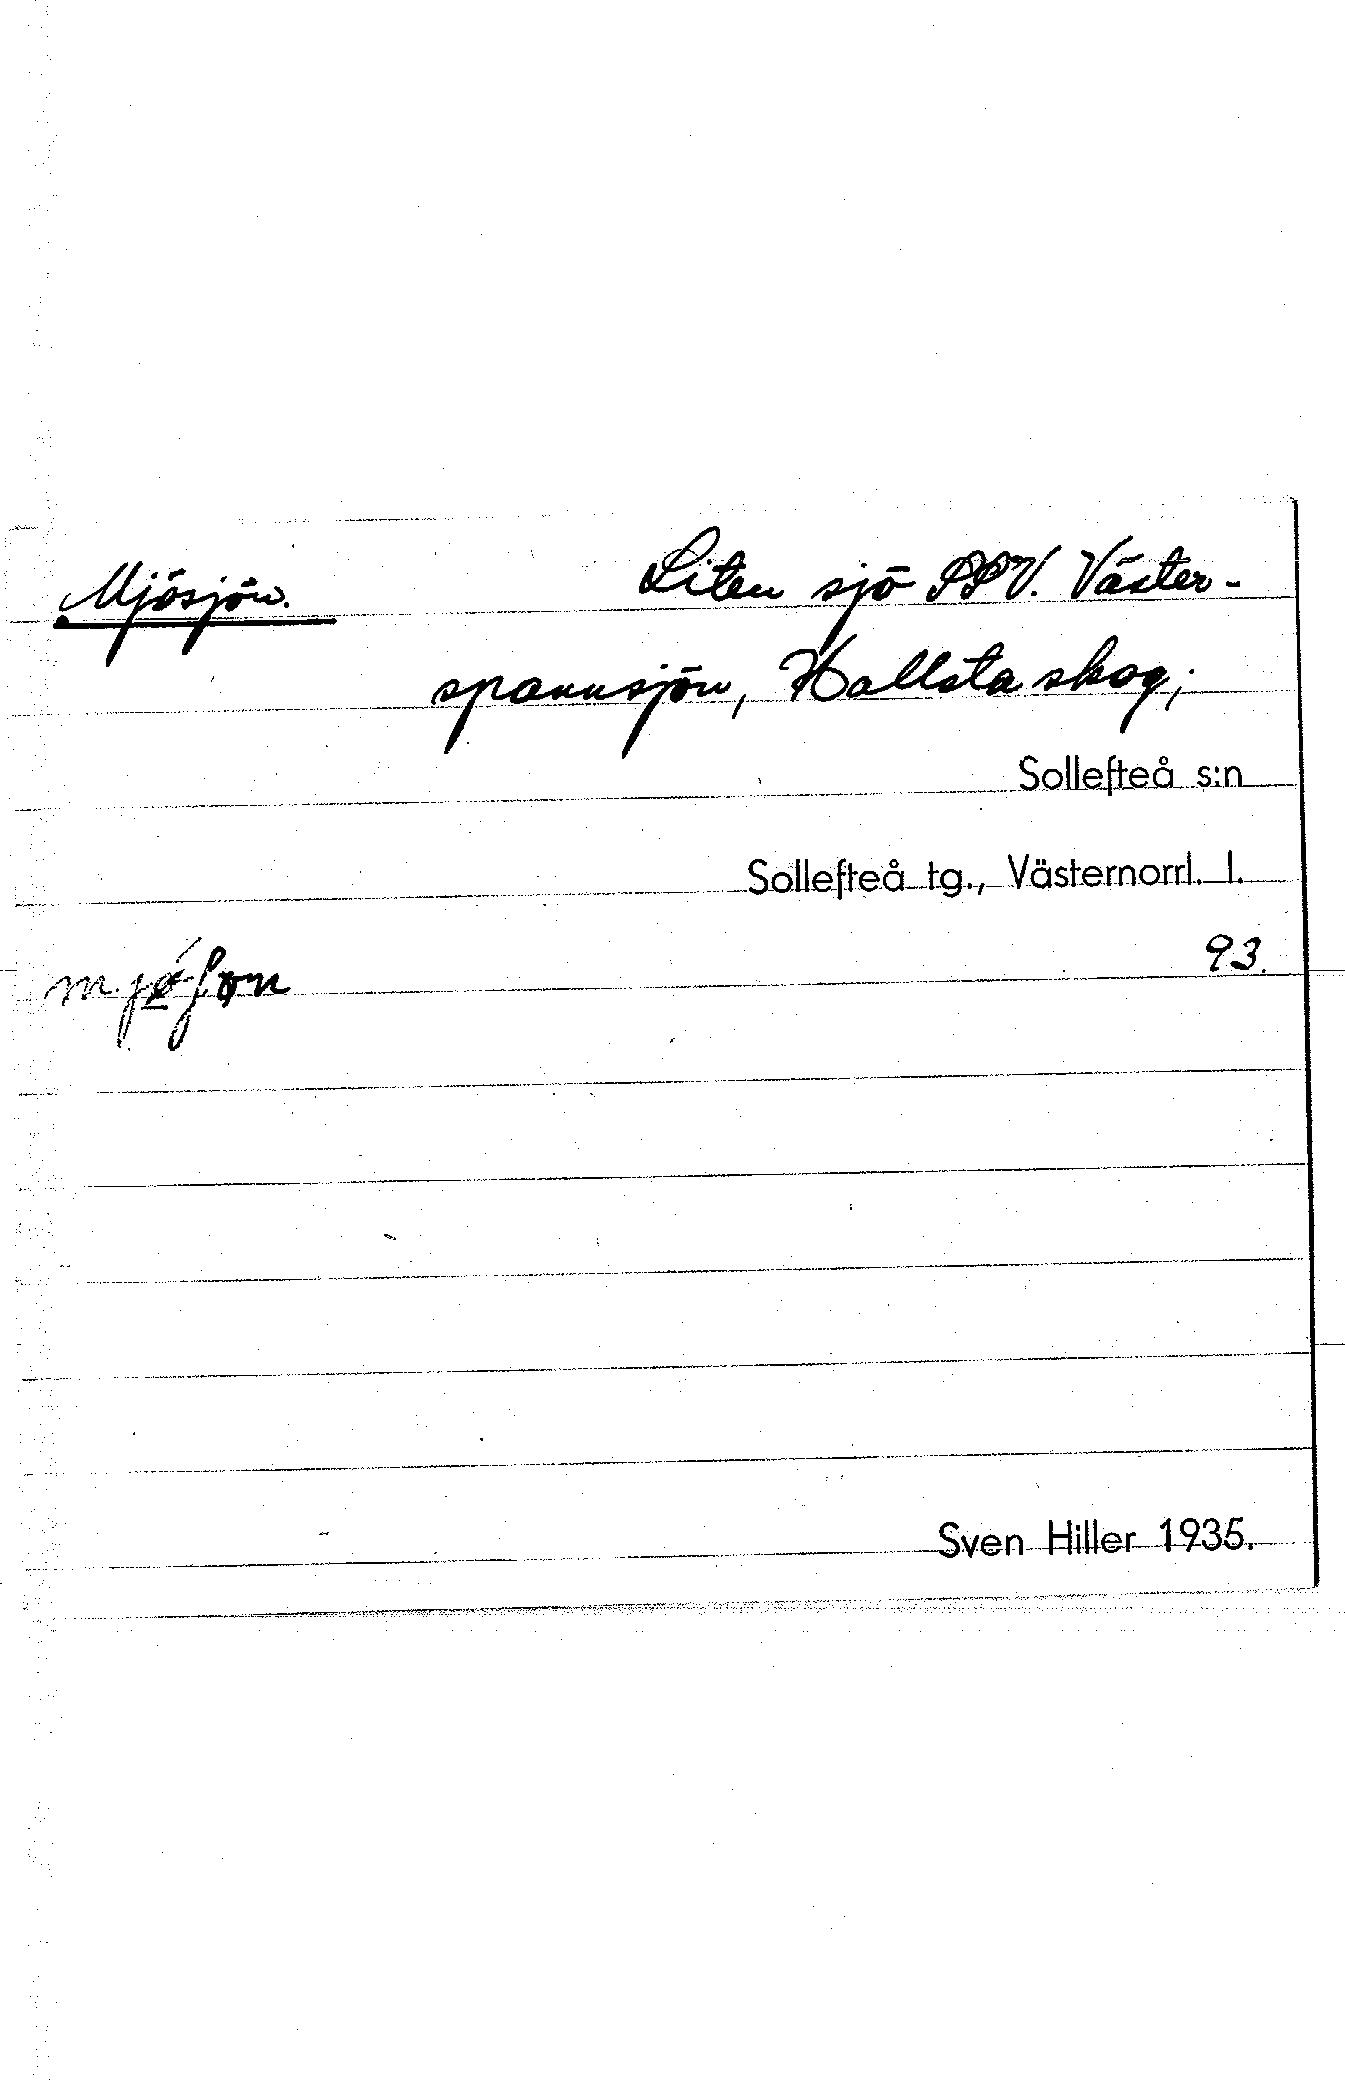 Mjösjön. Liten sjö SSV. Väster-
spannsjön, Hallsta skog;
Sollefteå s:n
Sollefteå tg., Västernorrl. l.
93.
Sven Hiller 1935.